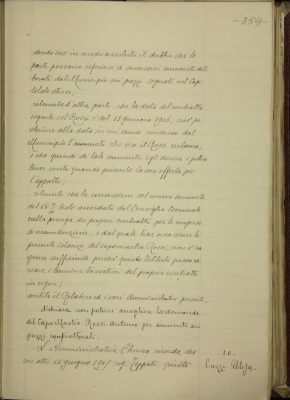 - 359 -
dendo così in modo assoluto il dubbio che le
parti possano riferirsi a successivi aumenti deli-
berati dal Municipio sui prezzi segnati nel Capi-
tolato stesso;
ritenuto d'altra parte, che la data del contratto
vigente col Rossi è del 18 gennaio 1906, cioè po-
steriore alla data in cui venne concesso dal
Municipio l'aumento che ora il Rossi reclama,
e che quindi di tale aumento egli doveva e poteva
tener conto quando presentò la sua offerta per
l'appalto;
ritenuto che la concessione del nuovo aumento
del accordato dal Consiglio Comunale
nella proroga dei propri contratti per le imprese
di manutenzione, e dal quale trae ora occasione la
presente istanza del capomastro Rossi, non è ra-
gione sufficiente perchè questo Istituto possa va-
riare i termini tassativi del proprio contratto
in vigore;
sentito il Relatore ed i vari Amministratori presenti,
dichiara non potersi accogliere la domanda
del Capo Mastro Rossi Antonio per aumento sui
prezzi contrattuali.
L'Amministratore Chiesa ricorda che
con atto 28 giugno 1905 rog. questo